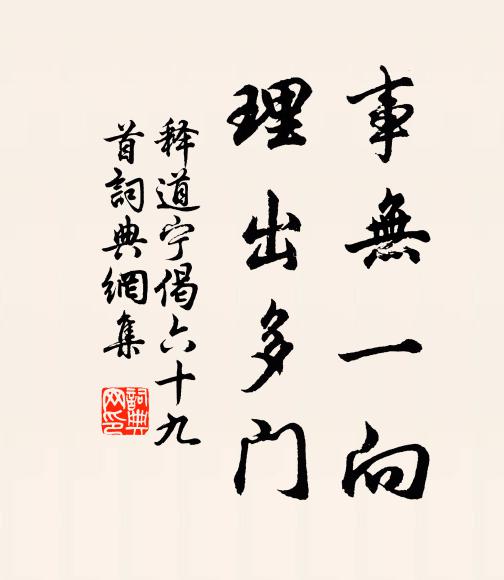 事無一向
理出多门
释道宁偈六十九
首詞典網集
詞典网印